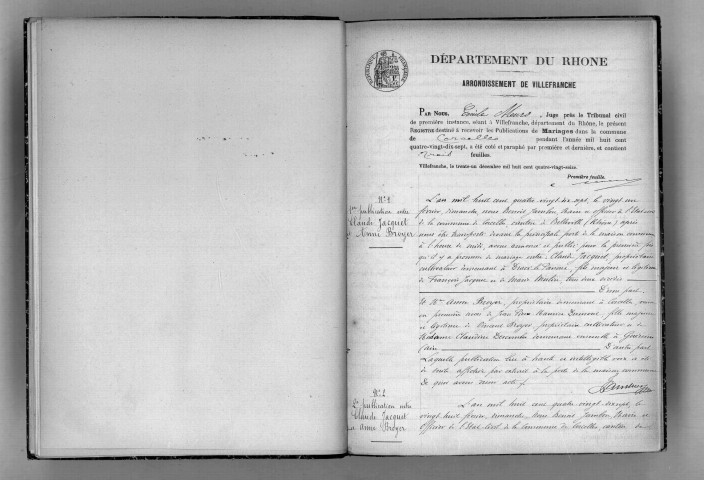 DÉPARTEMENT DU RHONE
ARRONDISSEMENT DE VILLEFRANCHE
PAR NOUS, Emile, Juge près le Tribunal civil
de première instance, séant à Villefranche, département du Rhône, le présent
REGISTRE destiné à recevoir les Publications de Mariages dans la commune
de Corcelles pendant l'année mil huit cent
quatre-vingt-dix-sept, a été coté et paraphé par première et dernière, et contient
feuilles.
Villefranche, le trente-un décembre mil huit cent quatre-vingt-seize.
Première feuille.
N° 1
1ère publication entre
Claude Jacquet
et Anna Broyer
L'an mil huit cent quatre vingt dix sept, le vingt un
février, dimanche, nous Benoit Jambon, Maire et officier de l'Etat civil
de la commune de Corcelles canton de Belleville (Rhône) après
nous être transporté devant la principale porte de la maison commune
à l'heure de midi, avons annoncé et publié pour la première fois
qu'il y a promesse de mariage entre Claude Jacquet, propriétaire
cultivateur demeurant à, fils majeur et légitime
de François Jacquet et de Marie, tous deux décédés
D'une part
Et Mme Anna Broyer, propriétaire demeurant à Corcelles, veuve
en premières noces de Jean Marie Dumont, fille majeure
et légitime de Vincent Broyer, propriétaire cultivateur et de
Madame Claudine demeurant ensemble à
D'autre part
Laquelle publication lue à haute et intelligible voix a été
de suite affichée par extrait à la porte de la maison commune
De quoi avons dressé acte
N° 2
2e publication entre
Claude Jacquet
et Anna Broyer
L'an mil huit cent quatre-vingt dix sept, le
vingt huit février, dimanche, nous Benoit Jambon, Maire et
officier de l'Etat Civil de la commune de Corcelles canton de